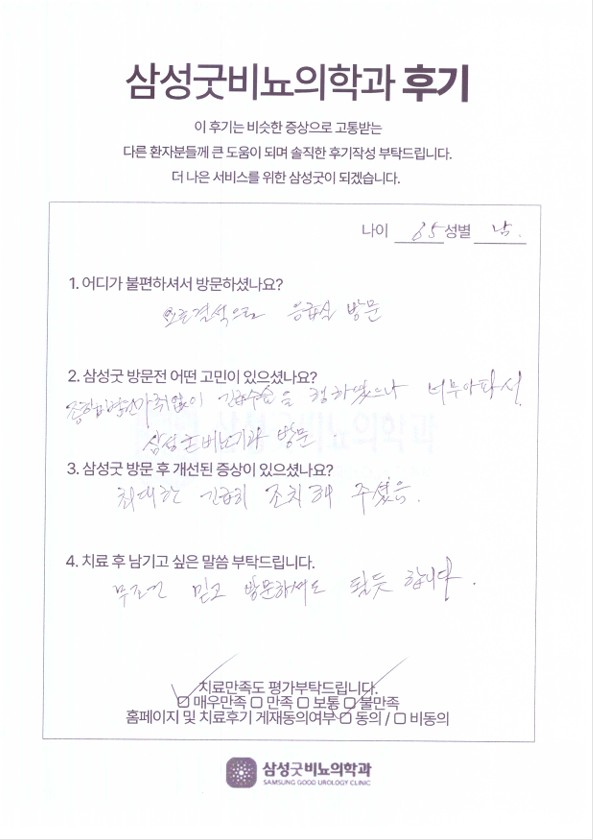 삼성굿비뇨의학과 후기
이 후기는 비슷한 증상으로 고통받는
다른 환자분들께 큰 도움이 되며 솔직한 후기작성 부탁드립니다.
더 나은 서비스를 위한 삼성굿이 되겠습니다.
나이 65 성별 남.
1. 어디가 불편하셔서 방문하셨나요?
요로결석으로 응급실 방문
2. 삼성굿 방문전 어떤 고민이 있으셨나요?
종합병원가 취없이 긴급수술을 청하였으나 너무아파서
삼성굿비뇨기과 방문.
3. 삼성굿 방문 후 개선된 증상이 있으셨나요?
최대한 긴급히 조치해 주셨음.
4. 치료 후 남기고 싶은 말씀 부탁드립니다.
무조건 믿고 방문하셔도 될듯 합니다.
치료만족도 평가부탁드립니다.
매우만족 만족 보통 불만족
홈페이지 및 치료후기 게재동의여부 동의 / 비동의
삼성굿비뇨의학과
SAMSUNG GOOD UROLOGY CLINIC